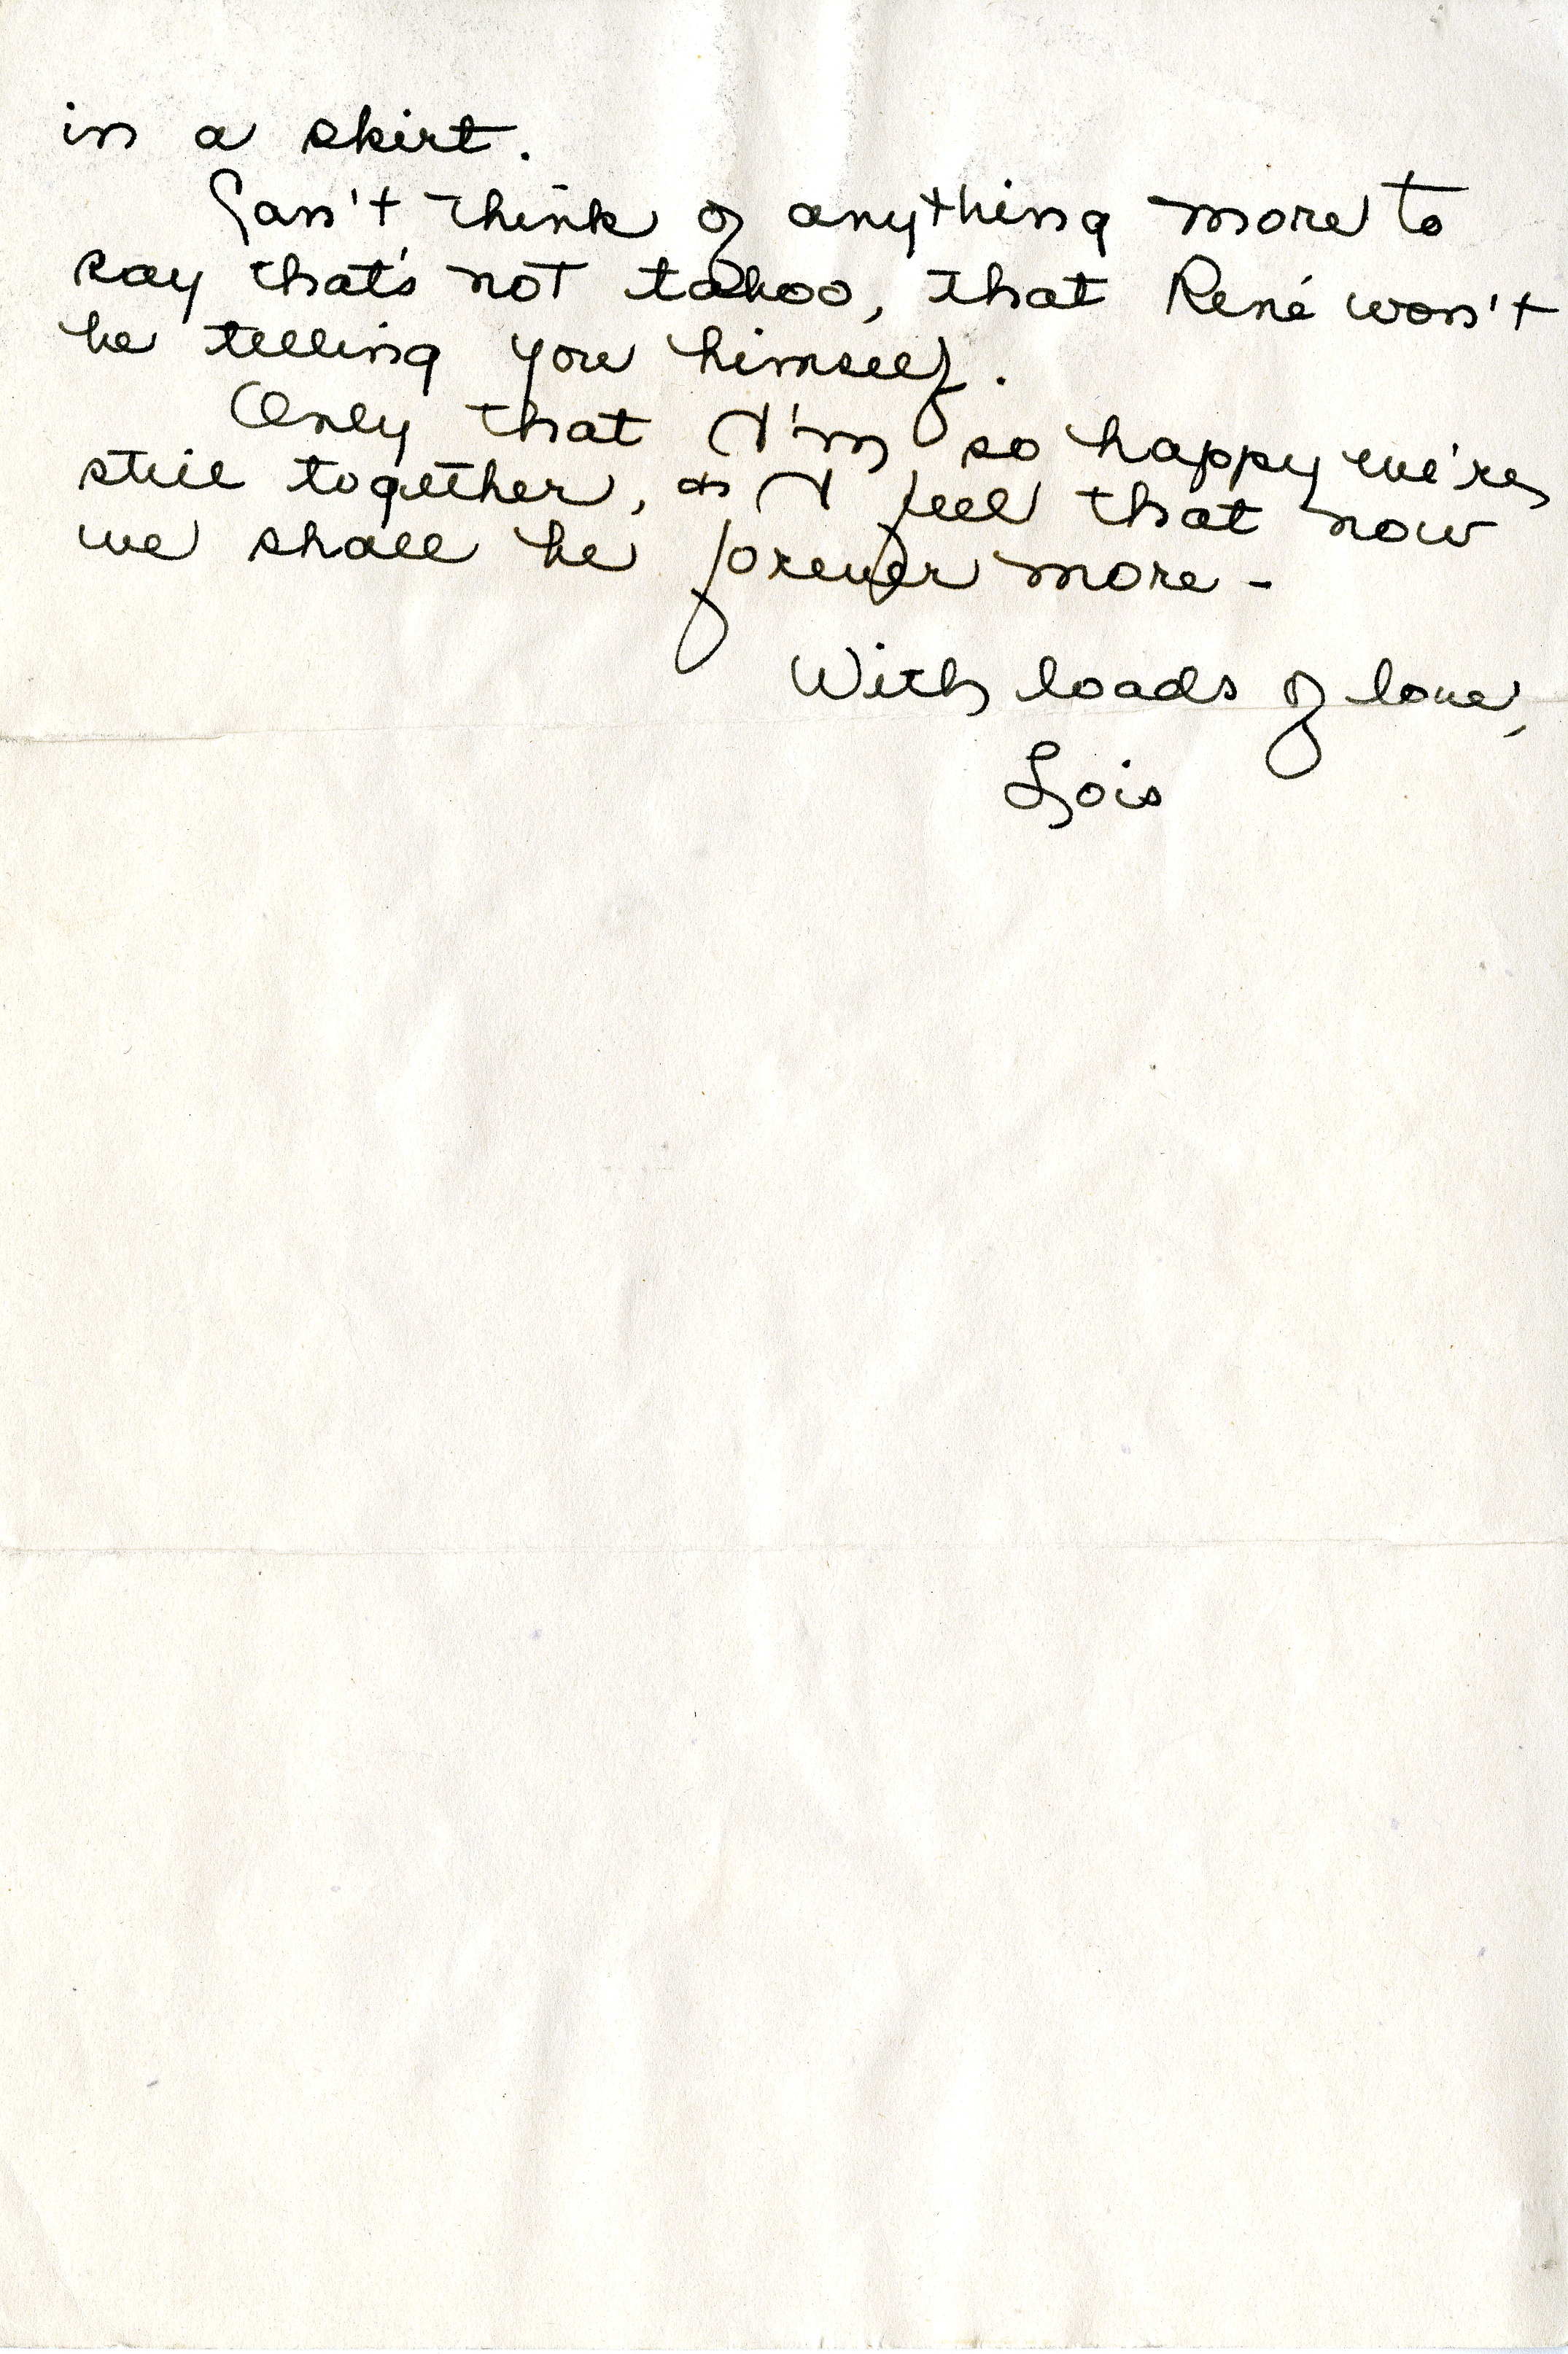 in a skirt.
Can't think of anything more to
say that's not taboo, that René won't
be telling you himself.
Only that I'm so happy we're
still together, & I feel that now
we shall be forever more -
With loads of love,
Lois